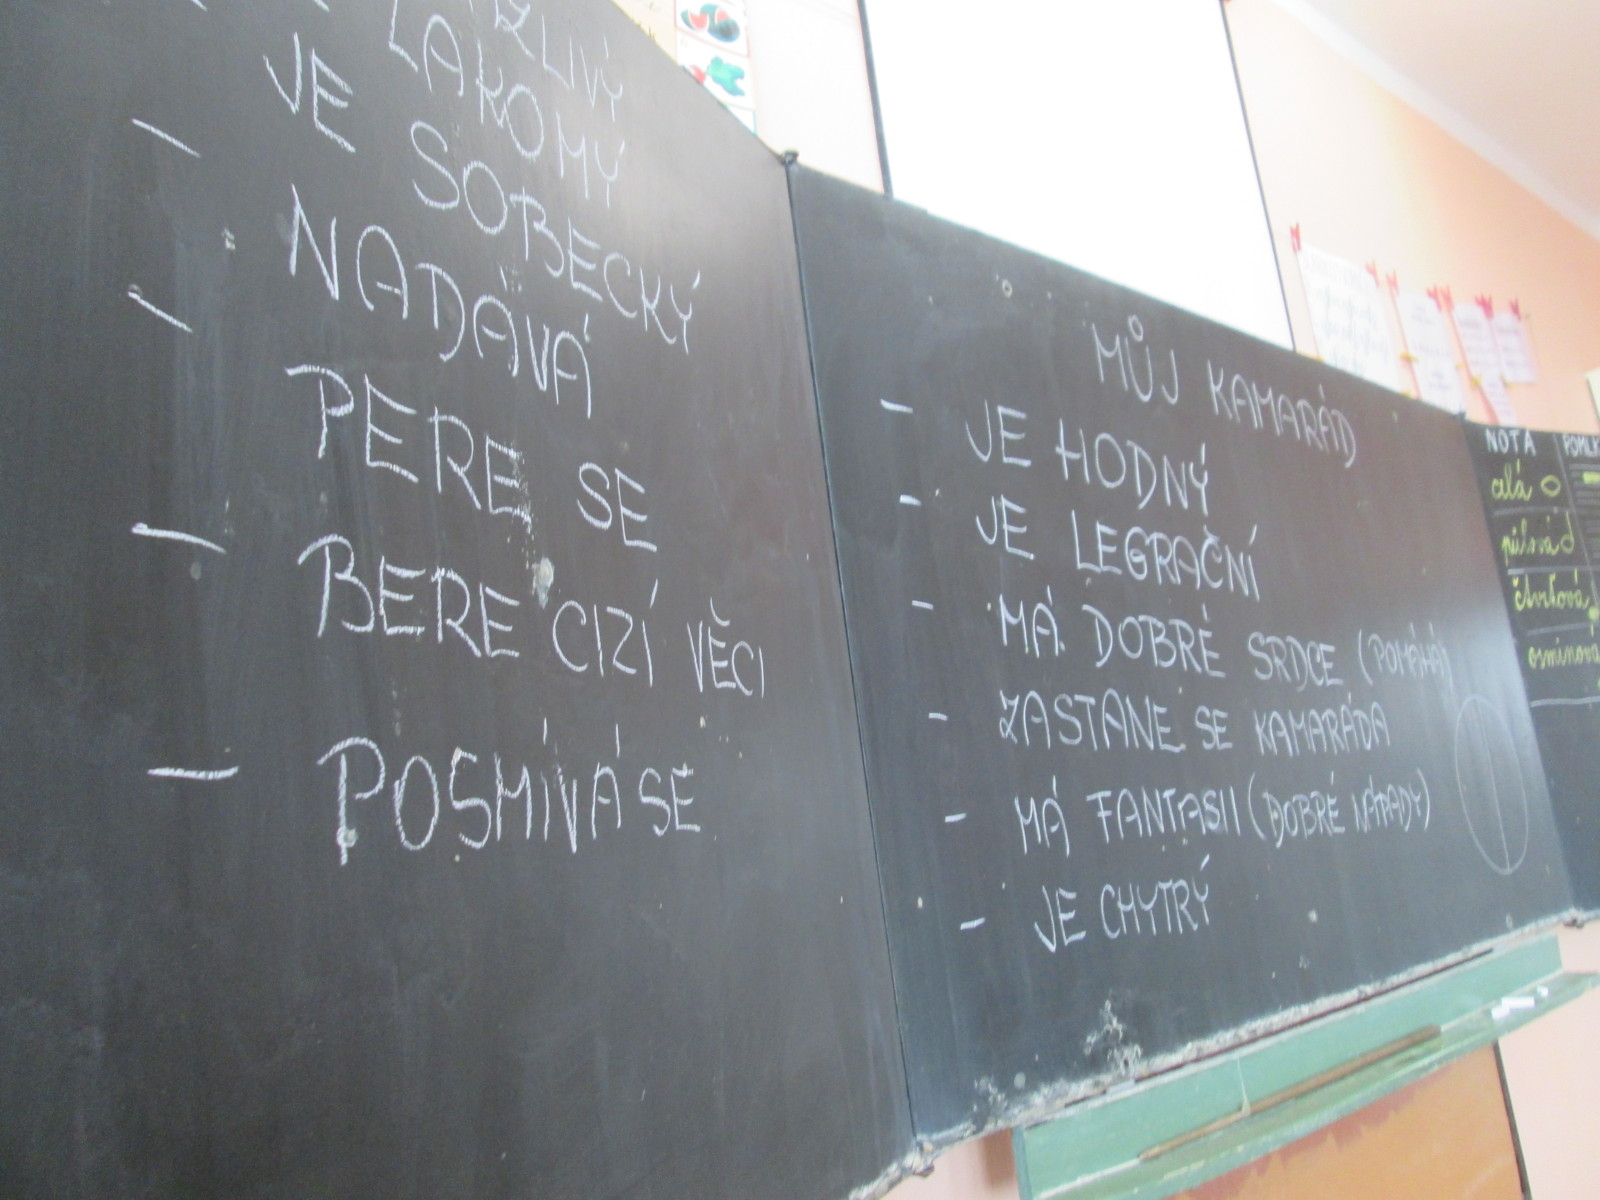 ZLIVÝ
LAKOMÝ
JE SOBECKÝ
- NADÁVÁ
- PERE SE
- BERE CIZÍ VĚCI
- POSMÍVÁ SE
MŮJ KAMARÁD
- JE HODNÝ
- JE LEGRAČNÍ
- MÁ DOBRÉ SRDCE (POMÁHÁ)
- ZASTANE SE KAMARÁDA
- MÁ FANTASII (DOBRÉ NÁPADY)
- JE CHYTRÝ
NOTA
celá
půlová
čtvrťová
osminová